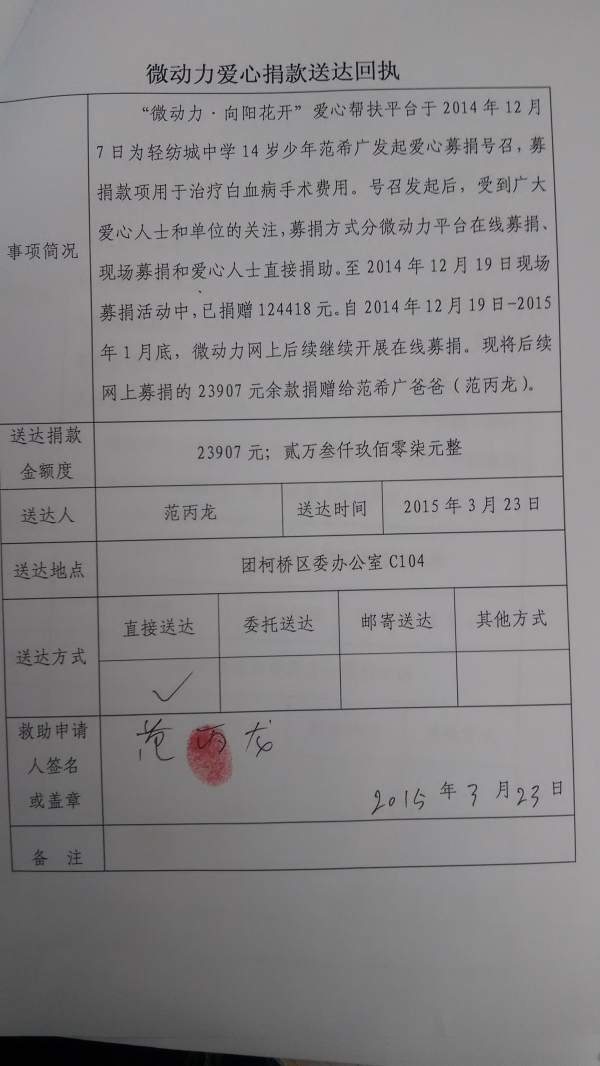 微动力爱心捐款送达回执
事项简况
“微动力·向阳花开”爱心帮扶平台于2014年12月
7日为轻纺城中学14岁少年范希广发起爱心募捐号召，募
捐款项用于治疗白血病手术费用。号召发起后，受到广大
爱心人士和单位的关注，募捐方式分微动力平台在线募捐、
现场募捐和爱心人士直接捐助。至2014年12月19日现场
募捐活动中，已捐赠124418元。自2014年12月19日-2015
年1月底，微动力网上后续继续开展在线募捐。现将后续
网上募捐的23907元余款捐赠给范希广爸爸（范丙龙）。
送达捐款
金额度
23907元；贰万叁仟玖佰零柒元整
送达人 范丙龙 送达时间 2015年3月23日
送达地点 团柯桥区委办公室C104
送达方式
直接送达 委托送达 邮寄送达 其他方式
救助申请
人签名
或盖章
范丙龙
2015年3月23日
备 注